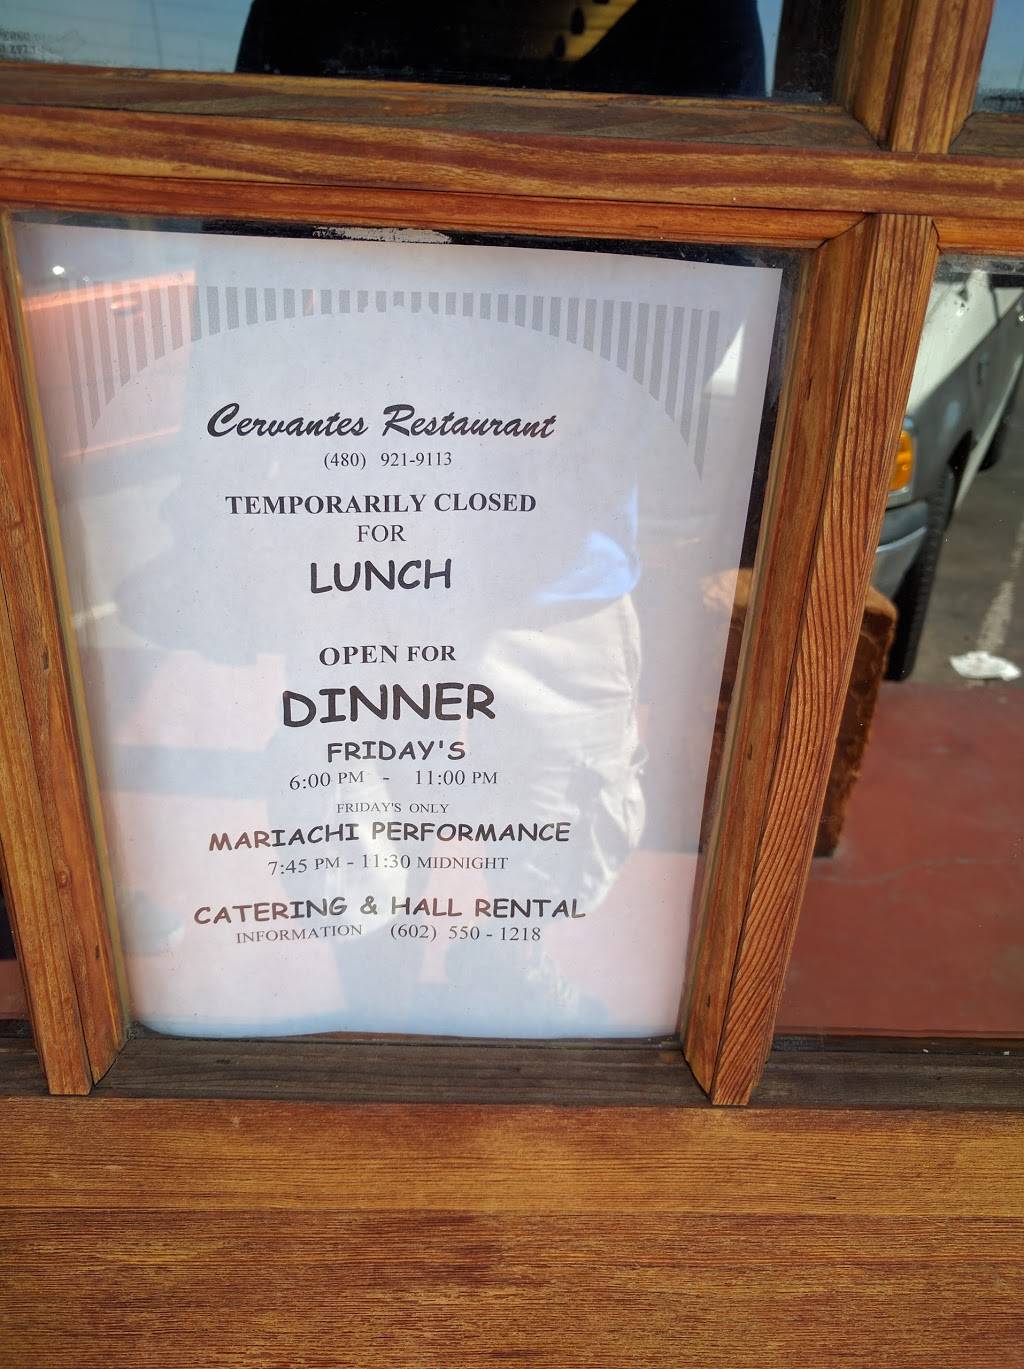 Cervantes Restaurant
(480) 921-9113
TEMPORARILY CLOSED
FOR
LUNCH
OPEN FOR
DINNER
FRIDAY'S
6:00 PM - 11:00 PM
FRIDAY'S ONLY
MARIACHI PERFORMANCE
7:45 PM - 11:30 MIDNIGHT
CATERING & HALL RENTAL
INFORMATION (602) 550 - 1218